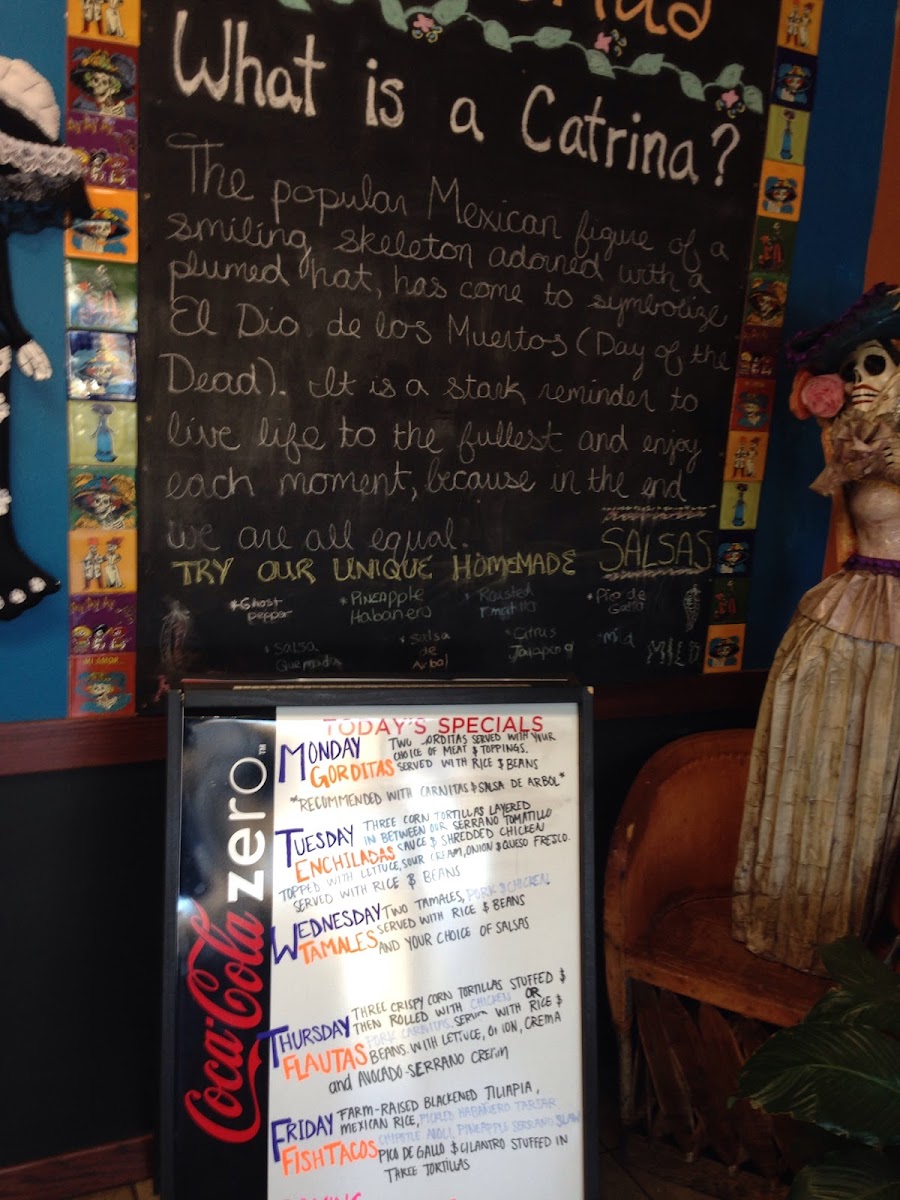 What is a Catrina?
The popular Mexican figure of a
smiling skeleton adorned with a
plumed hat, has come to symbolize
El Dia de los Muertos (Day of the
Dead). It is a stark reminder to
live life to the fullest and enjoy
each moment, because in the end
we are all equal.
TRY OUR UNIQUE HOMEMADE SALSAS
*Ghost pepper
*Pineapple Habanero
*Roasted Tomatillo
*Pico de Gallo
*Salsa Quemada
*Salsa de Arbol
*Citrus Jalapeno
*Mild
MILD
TODAY'S SPECIALS
MONDAY GORDITAS
TWO GORDITAS SERVED WITH YOUR
CHOICE OF MEAT & TOPPINGS.
SERVED WITH RICE & BEANS
*RECOMMENDED WITH CARNITAS & SALSA DE ARBOL*
TUESDAY ENCHILADAS
THREE CORN TORTILLAS LAYERED
IN BETWEEN OUR SERRANO TOMATILLO
SAUCE & SHREDDED CHICKEN
TOPPED WITH LETTUCE, SOUR CREAM, ONION & QUESO FRESCO.
SERVED WITH RICE & BEANS
WEDNESDAY TAMALES
TWO TAMALES, PORK & CHICKEN
SERVED WITH RICE & BEANS
AND YOUR CHOICE OF SALSAS
THURSDAY FLAUTAS
THREE CRISPY CORN TORTILLAS STUFFED &
THEN ROLLED WITH CHICKEN OR
PORK CARNITAS. SERVED WITH RICE &
BEANS. WITH LETTUCE, ONION, CREMA
and AVOCADO-SERRANO CREAM
FRIDAY FISH TACOS
FARM-RAISED BLACKENED TILIAPIA,
MEXICAN RICE, PICKLED HABANERO TARTAR
CHIPOTLE AIOLI, PINEAPPLE SERRANO SLAW
PICO DE GALLO & CILANTRO STUFFED IN
THREE TORTILLAS
Coca-Cola zero™